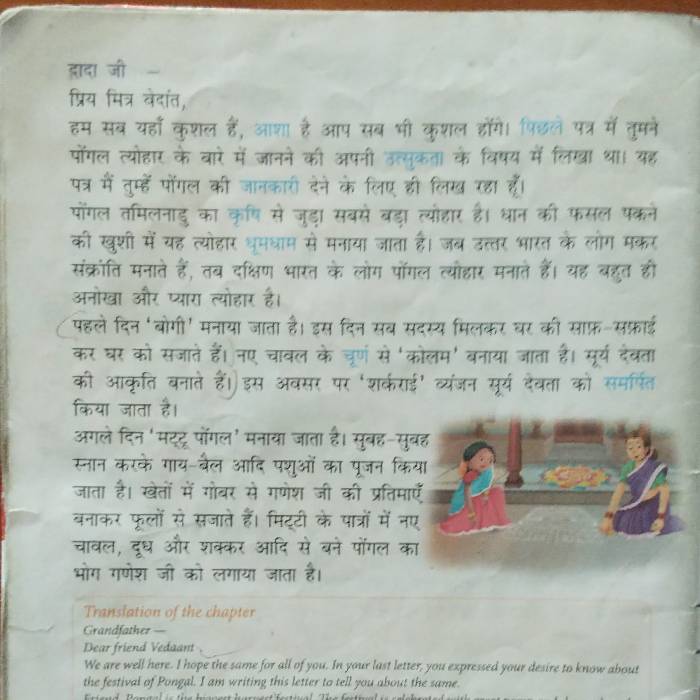 दादा जी –
प्रिय मित्र वेदांत,
हम सब यहाँ कुशल हैं, आशा है आप सब भी कुशल होंगे। पिछले पत्र में तुमने
पोंगल त्योहार के बारे में जानने की अपनी उत्सुकता के विषय में लिखा था। यह
पत्र मैं तुम्हें पोंगल की जानकारी देने के लिए ही लिख रहा हूँ।
पोंगल तमिलनाडु का कृषि से जुड़ा सबसे बड़ा त्योहार है। धान की फसल पकने
की खुशी में यह त्योहार धूमधाम से मनाया जाता है। जब उत्तर भारत के लोग मकर
संक्रांति मनाते हैं, तब दक्षिण भारत के लोग पोंगल त्योहार मनाते हैं। यह बहुत ही
अनोखा और प्यारा त्योहार है।
पहले दिन ‘बोगी’ मनाया जाता है। इस दिन सब सदस्य मिलकर घर की साफ़-सफ़ाई
कर घर को सजाते हैं। नए चावल के चूर्ण से ‘कोलम’ बनाया जाता है। सूर्य देवता
की आकृति बनाते हैं। इस अवसर पर ‘शर्कराई’ व्यंजन सूर्य देवता को समर्पित
किया जाता है।
अगले दिन ‘मट्टू पोंगल’ मनाया जाता है। सुबह-सुबह
स्नान करके गाय-बैल आदि पशुओं का पूजन किया
जाता है। खेतों में गोबर से गणेश जी की प्रतिमाएँ
बनाकर फूलों से सजाते हैं। मिट्टी के पात्रों में नए
चावल, दूध और शक्कर आदि से बने पोंगल का
भोग गणेश जी को लगाया जाता है।
Translation of the chapter
Grandfather —
Dear friend Vedaant,
We are well here. I hope the same for all of you. In your last letter, you expressed your desire to know about
the festival of Pongal. I am writing this letter to tell you about the same.
Friend, Pongal is the biggest harvest festival. The festival is celebrated with